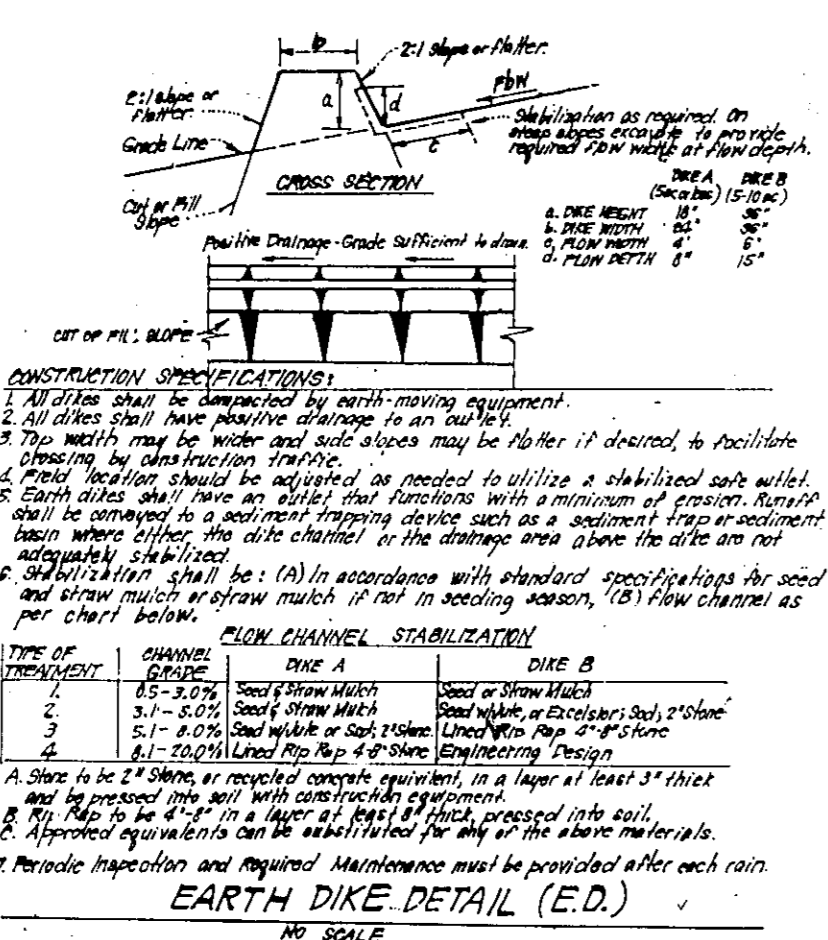 b
2:1 slope or flatter.
Flow
2:1 slope or
flatter
a
d
Stabilization as required. On
steep slopes excavate to provide
required flow width at flow depth.
Grade Line
c
CROSS SECTION
Cut or Fill
Slope
DIKE A DIKE B
(5-10 ac)
a. DIKE HEIGHT 18" 36"
b. DIKE WIDTH 24" 36"
c. FLOW WIDTH 4' 6'
d. FLOW DEPTH 8" 15"
Positive Drainage-Grade Sufficient to drain.
CUT OR FILL SLOPE
CONSTRUCTION SPECIFICATIONS:
1. All dikes shall be compacted by earth-moving equipment.
2. All dikes shall have positive drainage to an outlet.
3. Top width may be wider and side slopes may be flatter if desired, to facilitate
crossing by construction traffic.
4. Field location should be adjusted as needed to utilize a stabilized safe outlet.
5. Earth dikes shall have an outlet that functions with a minimum of erosion. Runoff
shall be conveyed to a sediment trapping device such as a sediment trap or sediment
basin where either the dike channel or the drainage area above the dike are not
adequately stabilized.
6. Stabilization shall be: (A) In accordance with standard specifications for seed
and straw mulch or straw mulch if not in seeding season, (B) flow channel as
per chart below.
FLOW CHANNEL STABILIZATION
TYPE OF TREATMENT CHANNEL GRADE DIKE A DIKE B
1. 0.5-3.0% Seed & Straw Mulch Seed or Straw Mulch
2. 3.1-5.0% Seed & Straw Mulch Seed w/Jute, or Excelsior; Sod; 2" Stone
3 5.1-8.0% Seed w/Jute or Sod; 2" Stone Lined Rip Rap 4"-8" Stone
4 8.1-20.0% Lined Rip Rap 4-8" Stone Engineering Design
A. Stone to be 2" Stone, or recycled concrete equivilent, in a layer at least 3" thick
and be pressed into soil with construction equipment.
B. Rip Rap to be 4"-8" in a layer at least 8" thick, pressed into soil.
C. Approved equivalents can be substituted for any of the above materials.
7. Periodic Inspection and Required Maintenance must be provided after each rain.
EARTH DIKE DETAIL (E.D.)
NO SCALE